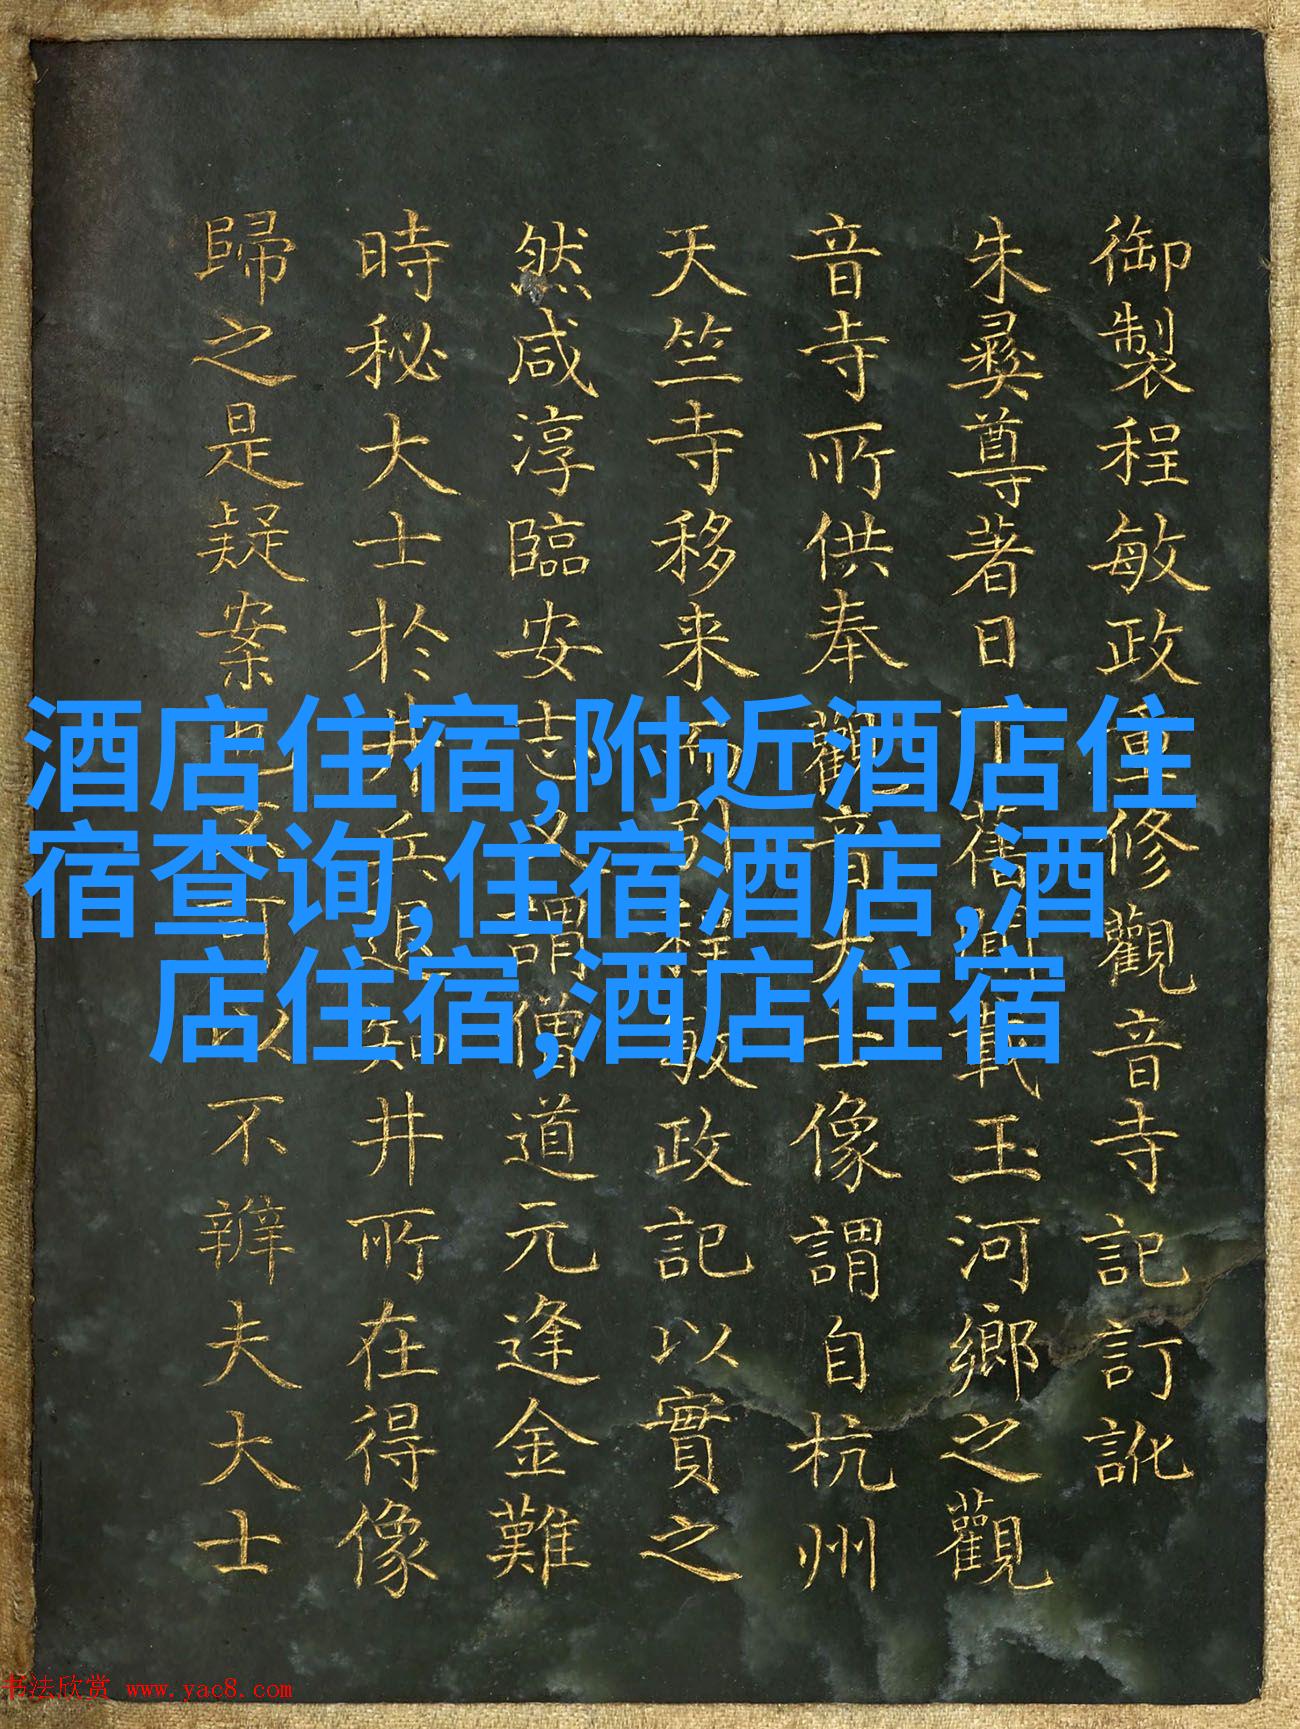 御製程敏政重修觀音寺記訂訛
朱彝尊著日下舊聞載玉河鄉之觀
音寺所供奉觀音大士像謂自杭州
天竺寺移来而引程敏政記以實之
然咸淳臨安志又謂僧道元逢金難
時秘大士於井兵退知井所在得像
歸之是疑案也不可以不辨夫大士
酒店住宿,附近酒店住
宿查询,住宿酒店,酒
店住宿,酒店住宿
书法欣赏 www.yac8.com